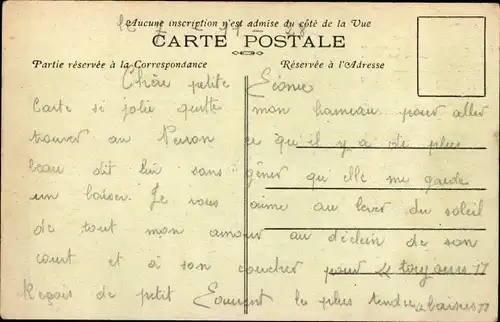 Aucune inscription n'est admise du côté de la Vue
CARTE POSTALE
Partie réservée à la Correspondance
Réservée à l'Adresse
petite
Carte si jolie quitte mon hameau pour aller
trouver au ce qu'il y a de plus
beau dit lui sans gêner qu'elle me garde
un baiser. Je vous aime au lever du soleil
de tout mon amour au déclin de son
court et à son coucher pour "toujours"
Reçois de petit le plus tendre baisers